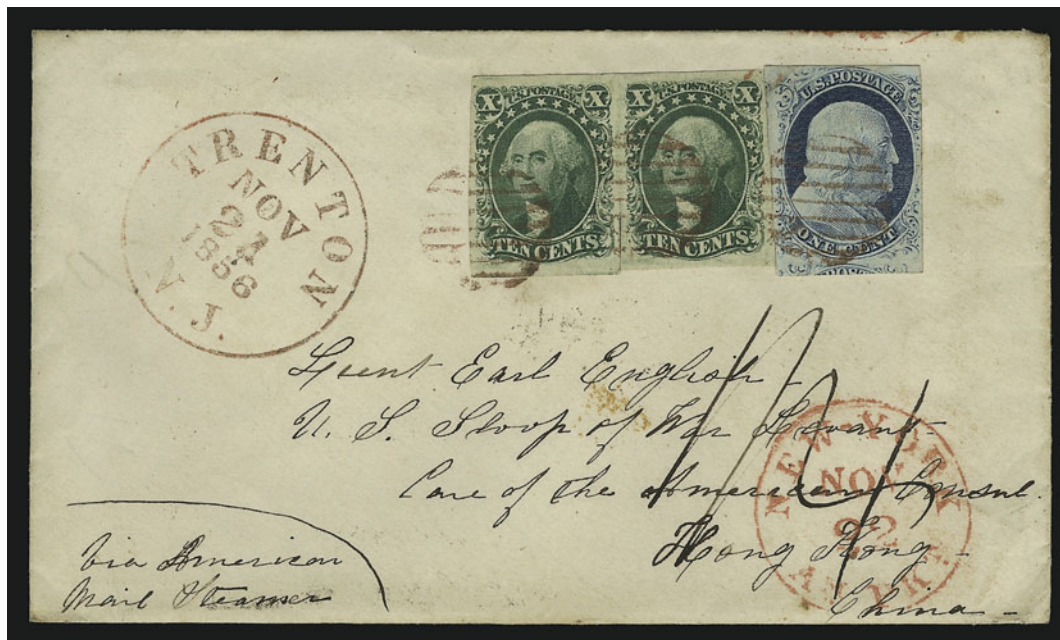 TRENTON
NOV
1856
N.J.
X U.S. POSTAGE X
TEN CENTS
X U.S. POSTAGE X
TEN CENTS
U.S. POSTAGE
ONE CENT
Lieut Earl English -
U. S. Sloop of War Levant -
Care of the American Consul.
Hong Kong -
China -
Via American
Mail Steamer
NEW-YORK
NOV
AM. PKT.